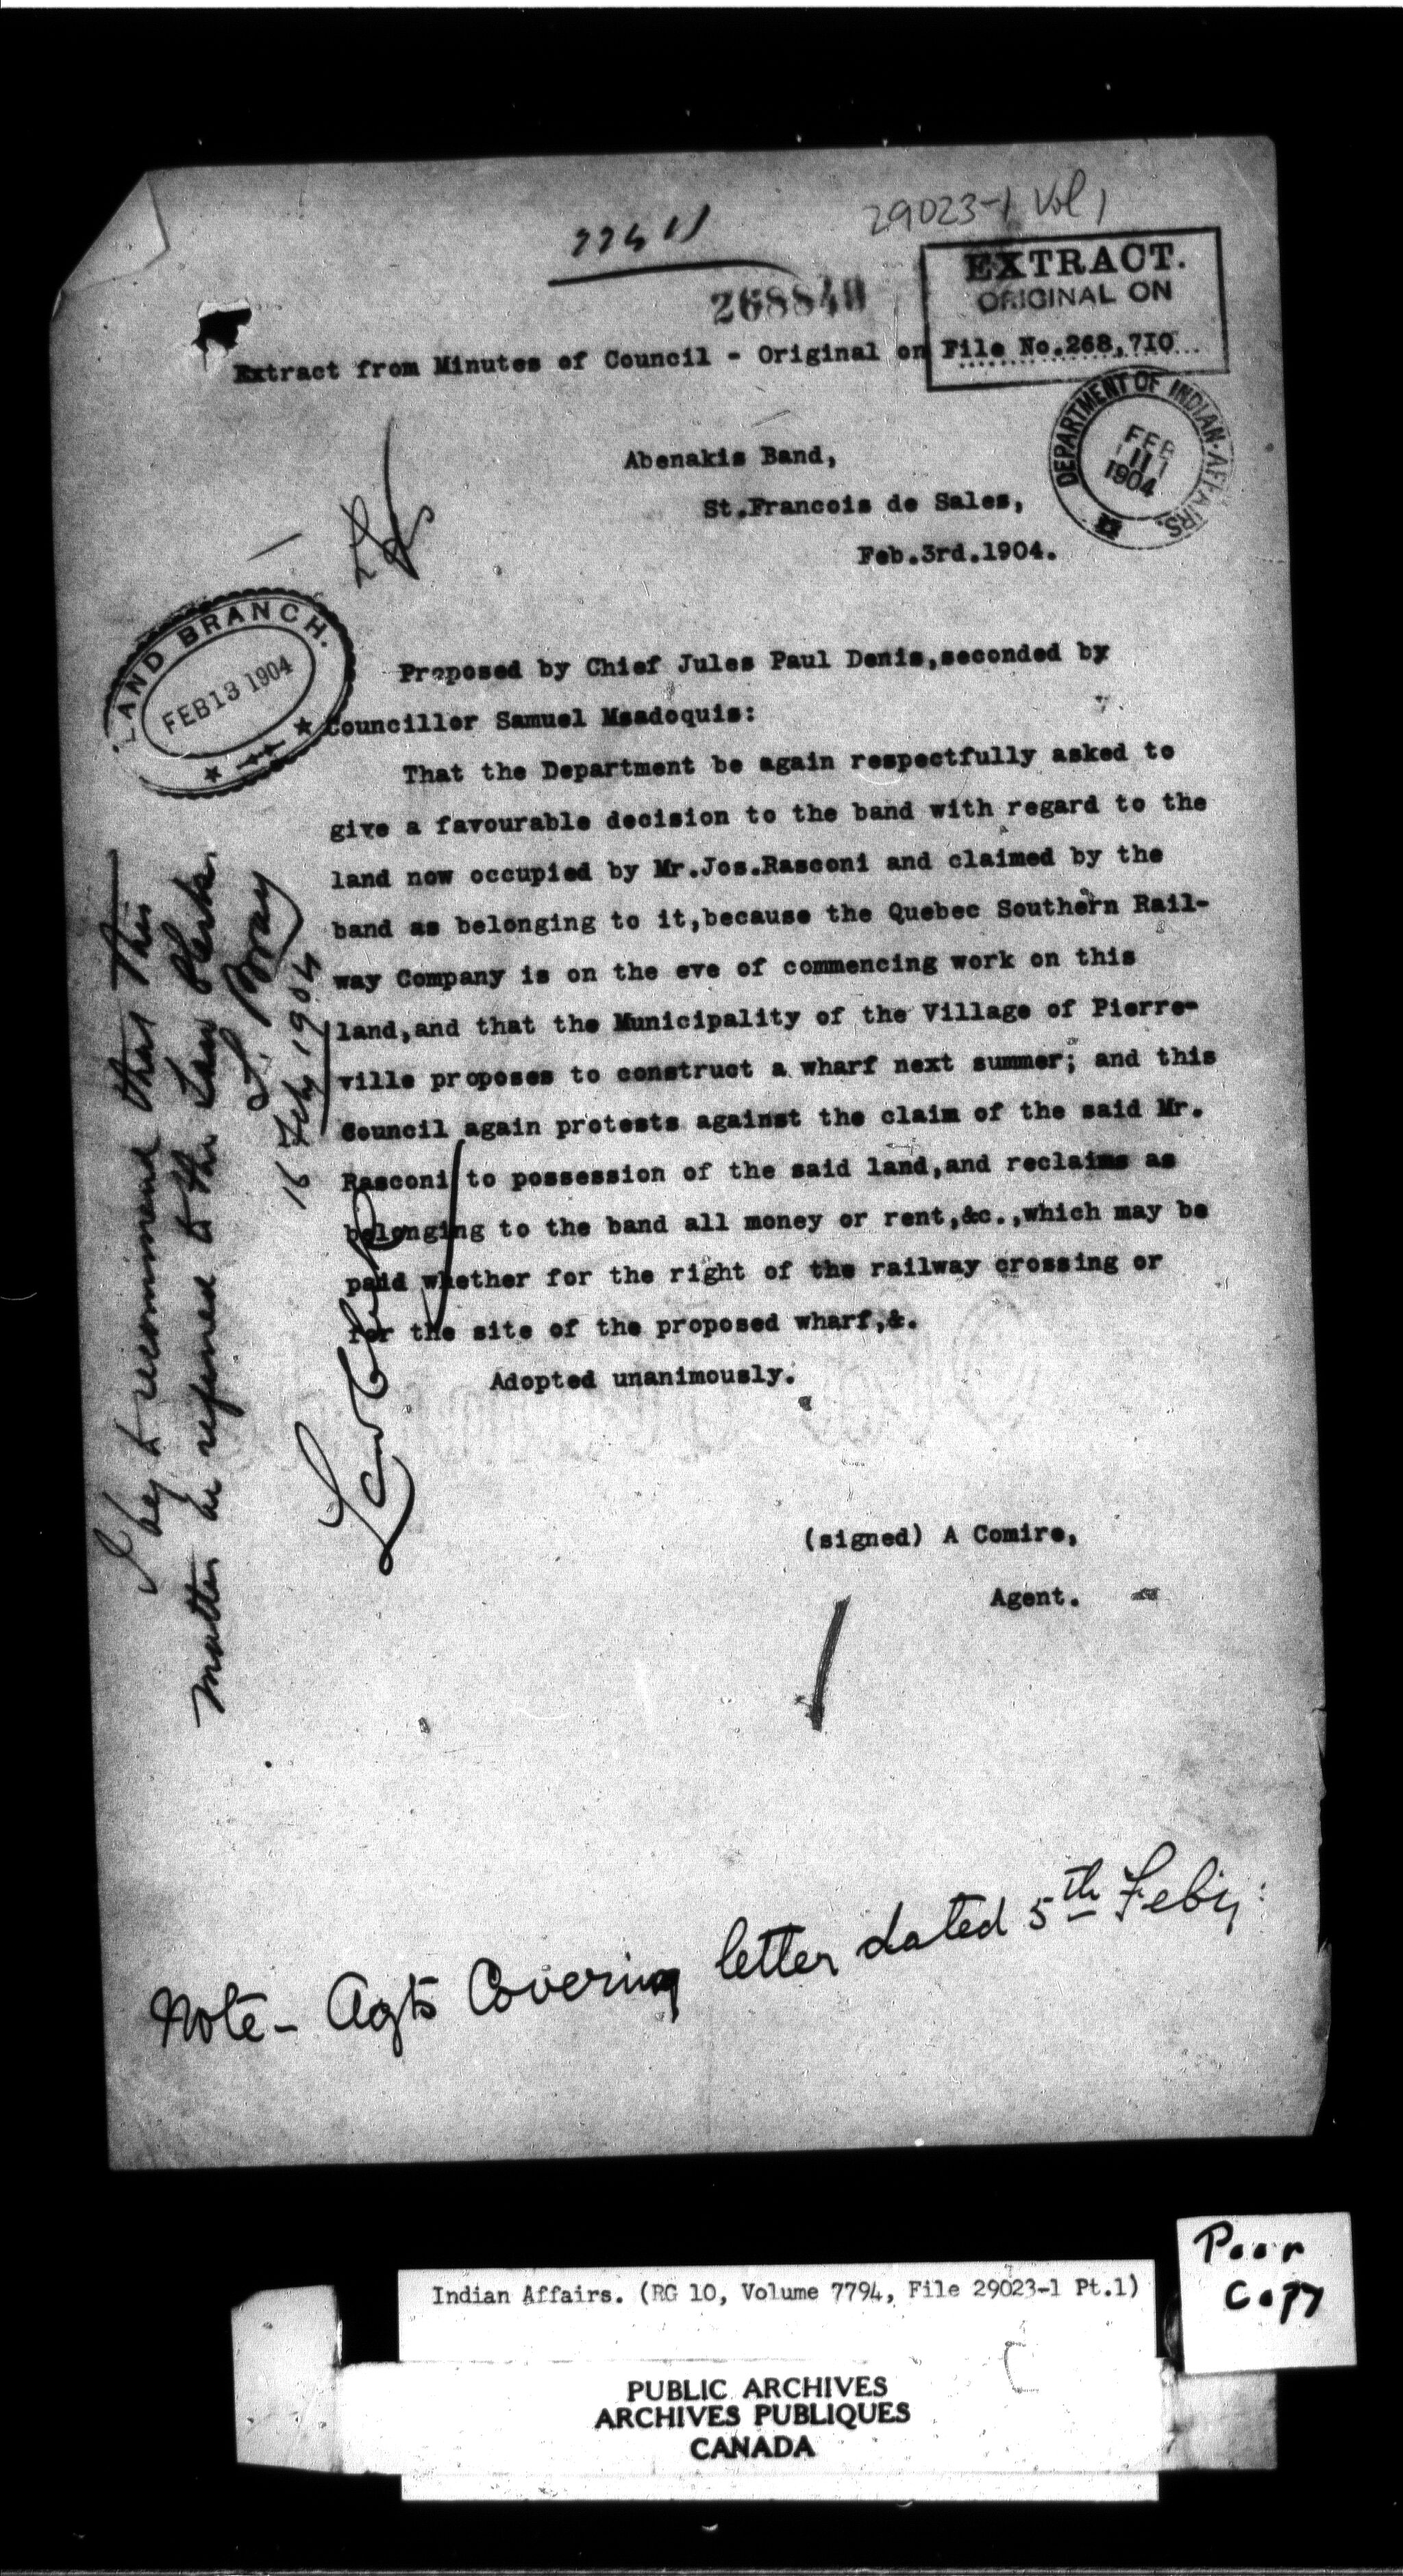 29023-1 Vol 1
268840
EXTRACT.
ORIGINAL ON
File No.268,710
Extract from Minutes of Council - Original on
DEPARTMENT OF INDIAN AFFAIRS.
FEB
11
1904
Abenakis Band,
St.Francois de Sales,
Feb.3rd.1904.
LAND BRANCH.
FEB 13 1904
Proposed by Chief Jules Paul Denis,seconded by
Councillor Samuel Msadoquis:
That the Department be again respectfully asked to
give a favourable decision to the band with regard to the
land now occupied by Mr.Jos.Rasconi and claimed by the
band as belonging to it,because the Quebec Southern Rail-
way Company is on the eve of commencing work on this
land,and that the Municipality of the Village of Pierre-
ville proposes to construct a wharf next summer; and this
Council again protests against the claim of the said Mr.
Rasconi to possession of the said land,and reclaims as
belonging to the band all money or rent,&c.,which may be
paid whether for the right of the railway crossing or
for the site of the proposed wharf,&.
Adopted unanimously.
(signed) A Comire,
Agent.
I beg to recommend that this
matter be referred to the Law Clerk.
Bray
16 Feby 1904
Law Clerk
Note - Agts Covering letter dated 5th Feby:
Poor
Copy
Indian Affairs. (RG 10, Volume 7794, File 29023-1 Pt.1)
PUBLIC ARCHIVES
ARCHIVES PUBLIQUES
CANADA